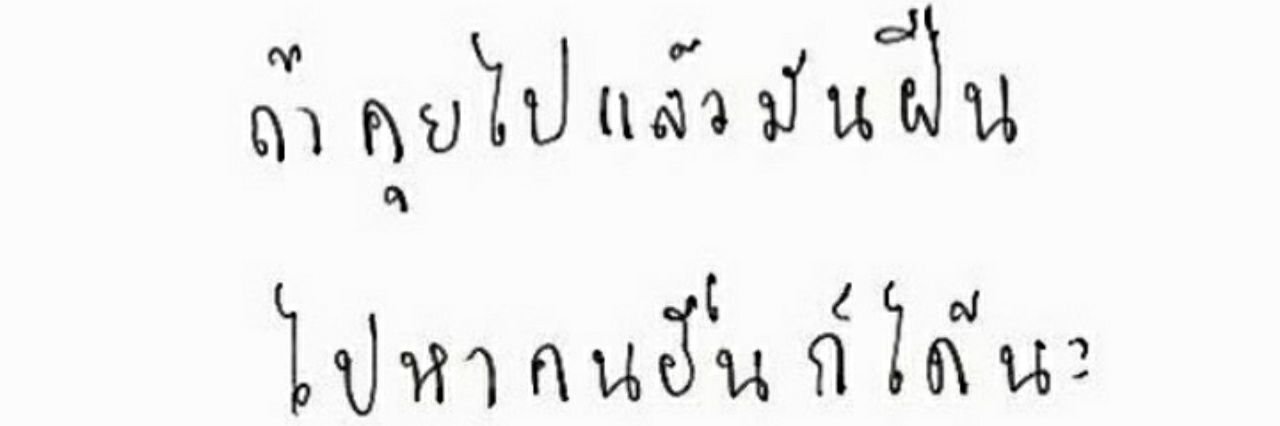 ถ้าคุยไปแล้วมันฝืน
ไปหาคนอื่นก็ได้นะ